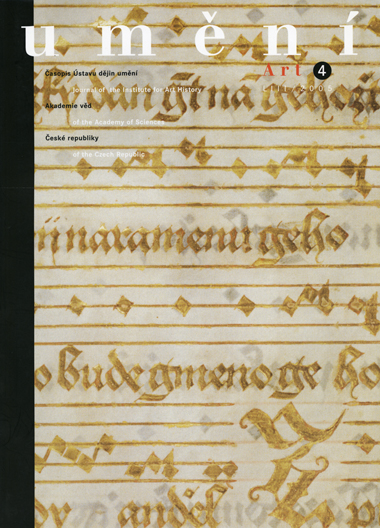 umění
Art 4
LIII/2005
Časopis Ústavu dějin umění
Journal of the Institute for Art History
Akademie věd
of the Academy of Sciences
České republiky
of the Czech Republic
naramenu geho
bude gmeno ge ho